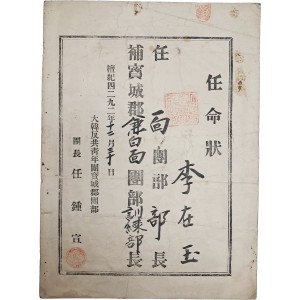 任命狀
李在玉
任 面團部 部長
補寶城郡兼白面團部訓練部長
檀紀四二九二年十二月三十日
大韓反共靑年團寶城郡團部
團長 任鍾宣